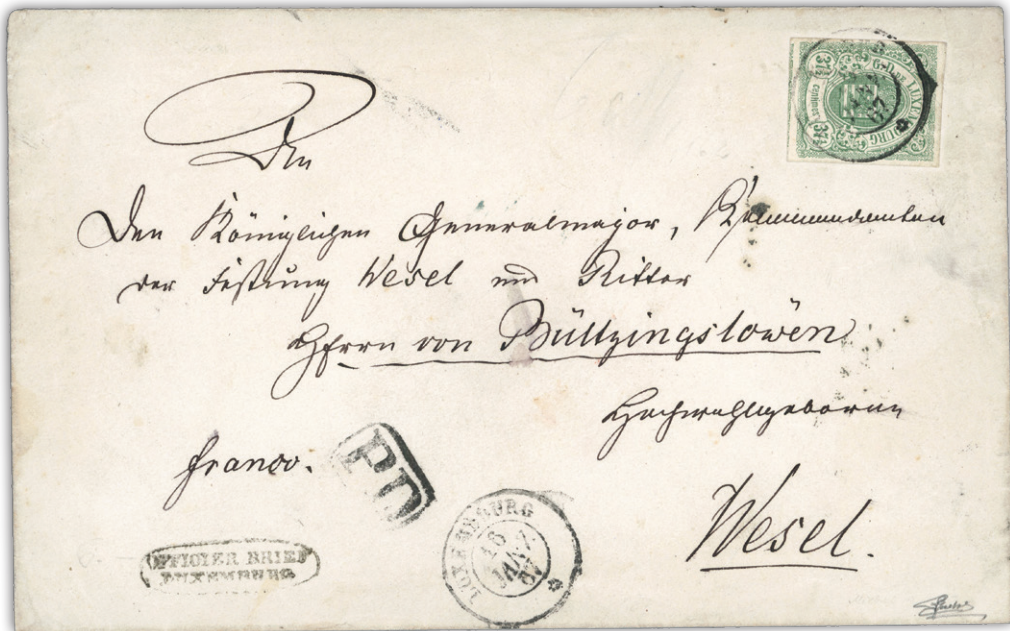 37½ G·D· DE LUXEMBOURG
37½ centimes
67
An
Den Königlichen Generalmajor, Kommandanten
der Festung Wesel und Ritter
Herrn von Bültzingslöwen
Hochwohlgeboren
franco.
PD
Wesel.
OFFICIER BRIEF
LUXEMBURG
LUXEMBOURG
16
JANV
67